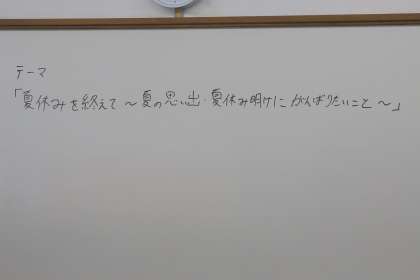 テーマ
「夏休みを終えて〜夏の思い出・夏休み明けにがんばりたいこと〜」